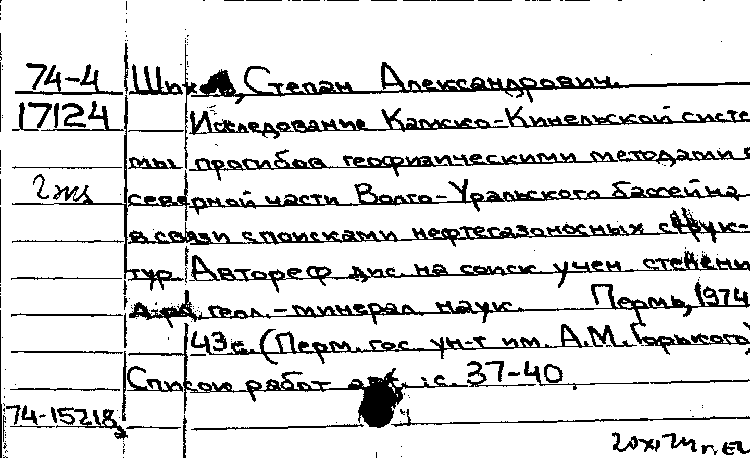 74-4 Степан Александрович.
17124 Исследование Камско-Кинельской систе
мы прогибов геофизическими методами в
2 экз северной части Волго-Уральского бассейна
в связи с поисками нефтегазоносных струк-
тур. Автореф. дис. на соиск. учен. степени
д-ра геол.-минерал. наук. Пермь, 1974
43 с. (Перм. гос. ун-т им. А.М. Горького)
Список работ авт.: с. 37-40.
74-15218